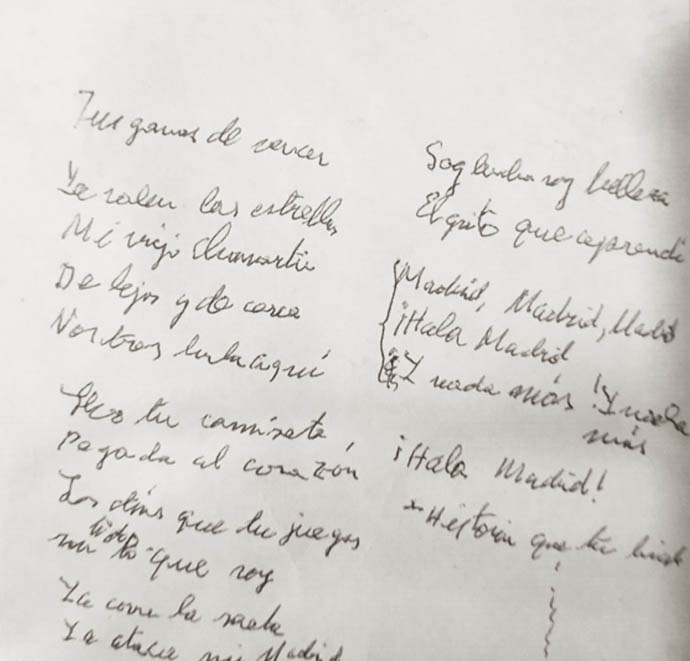 Tus ganas de vencer
Ya salen las estrellas
Mi viejo Chamartín
De lejos y de cerca
Nos tras aquí
Llevo tu camiseta,
Pegada al corazón
Los días que tu juegas
son todo que soy
Ya corre la saeta
Ya ataca mi Madrid
Soy lucha soy belleza
El grito que aprendí
Madrid, Madrid, Madrid
¡Hala Madrid
Y nada más ! Y nada
más
¡Hala Madrid!
Historia que tu